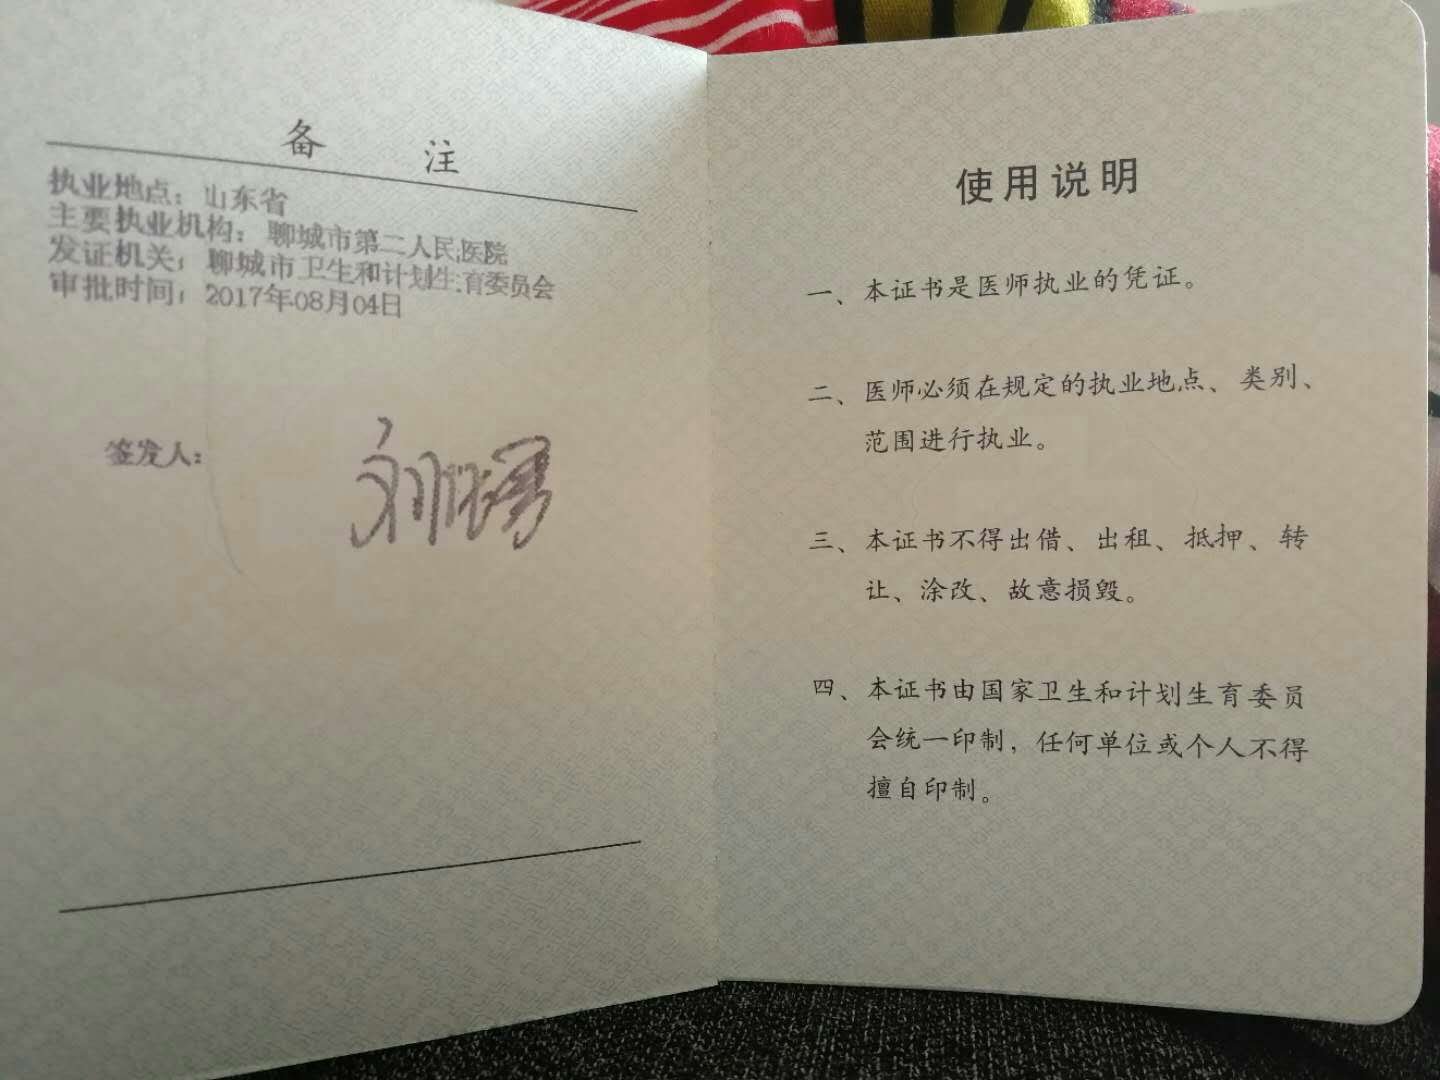 备 注
执业地点：山东省
主要执业机构：聊城市第二人民医院
发证机关：聊城市卫生和计划生育委员会
审批时间：2017年08月04日
签发人：
使用说明
一、本证书是医师执业的凭证。
二、医师必须在规定的执业地点、类别、
范围进行执业。
三、本证书不得出借、出租、抵押、转
让、涂改、故意损毁。
四、本证书由国家卫生和计划生育委员
会统一印制，任何单位或个人不得
擅自印制。